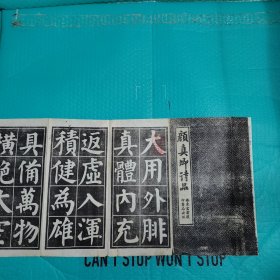 顏真卿詩品
大用外腓
真體內充
返虛入渾
積健為雄
具備萬物
橫絶太空
CAN'T STOP WON'T STOP